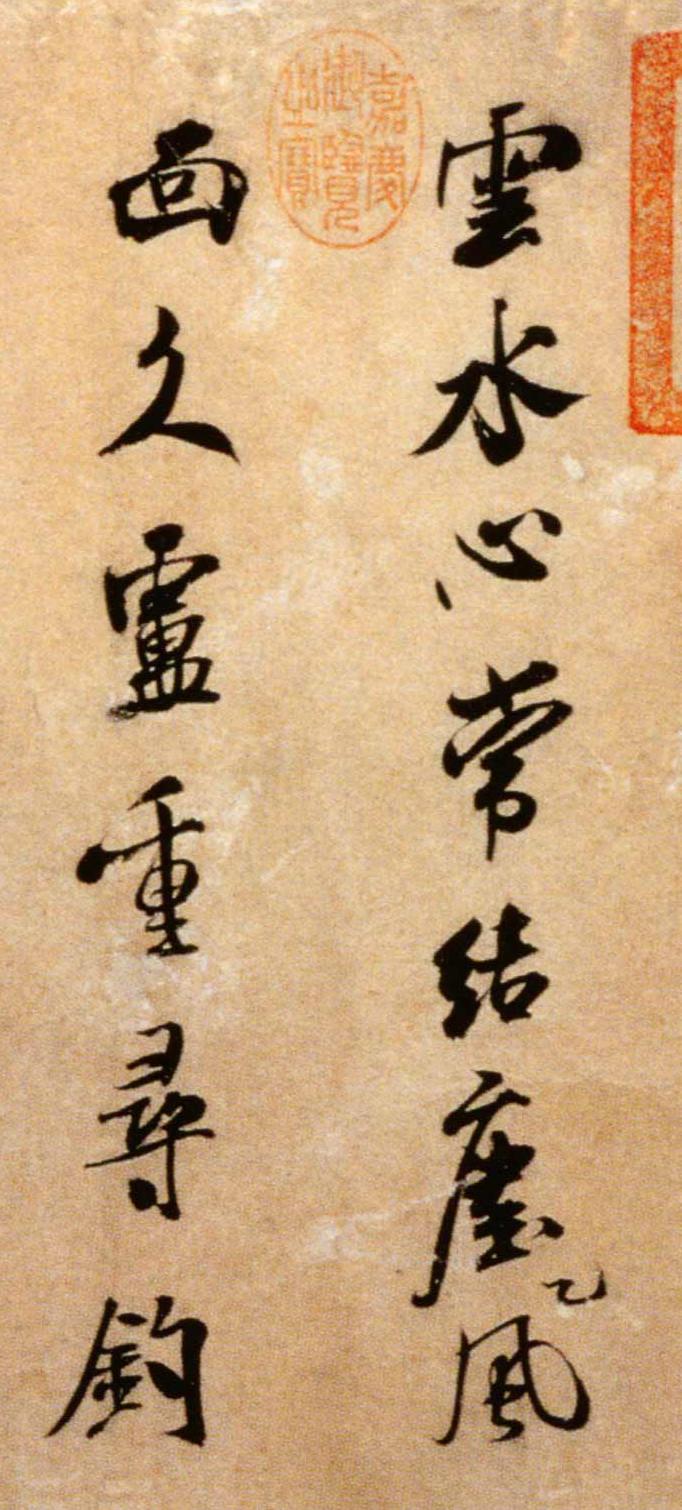 雲水心常結塵風
面久盧重尋釣
嘉慶
御覽
之寶